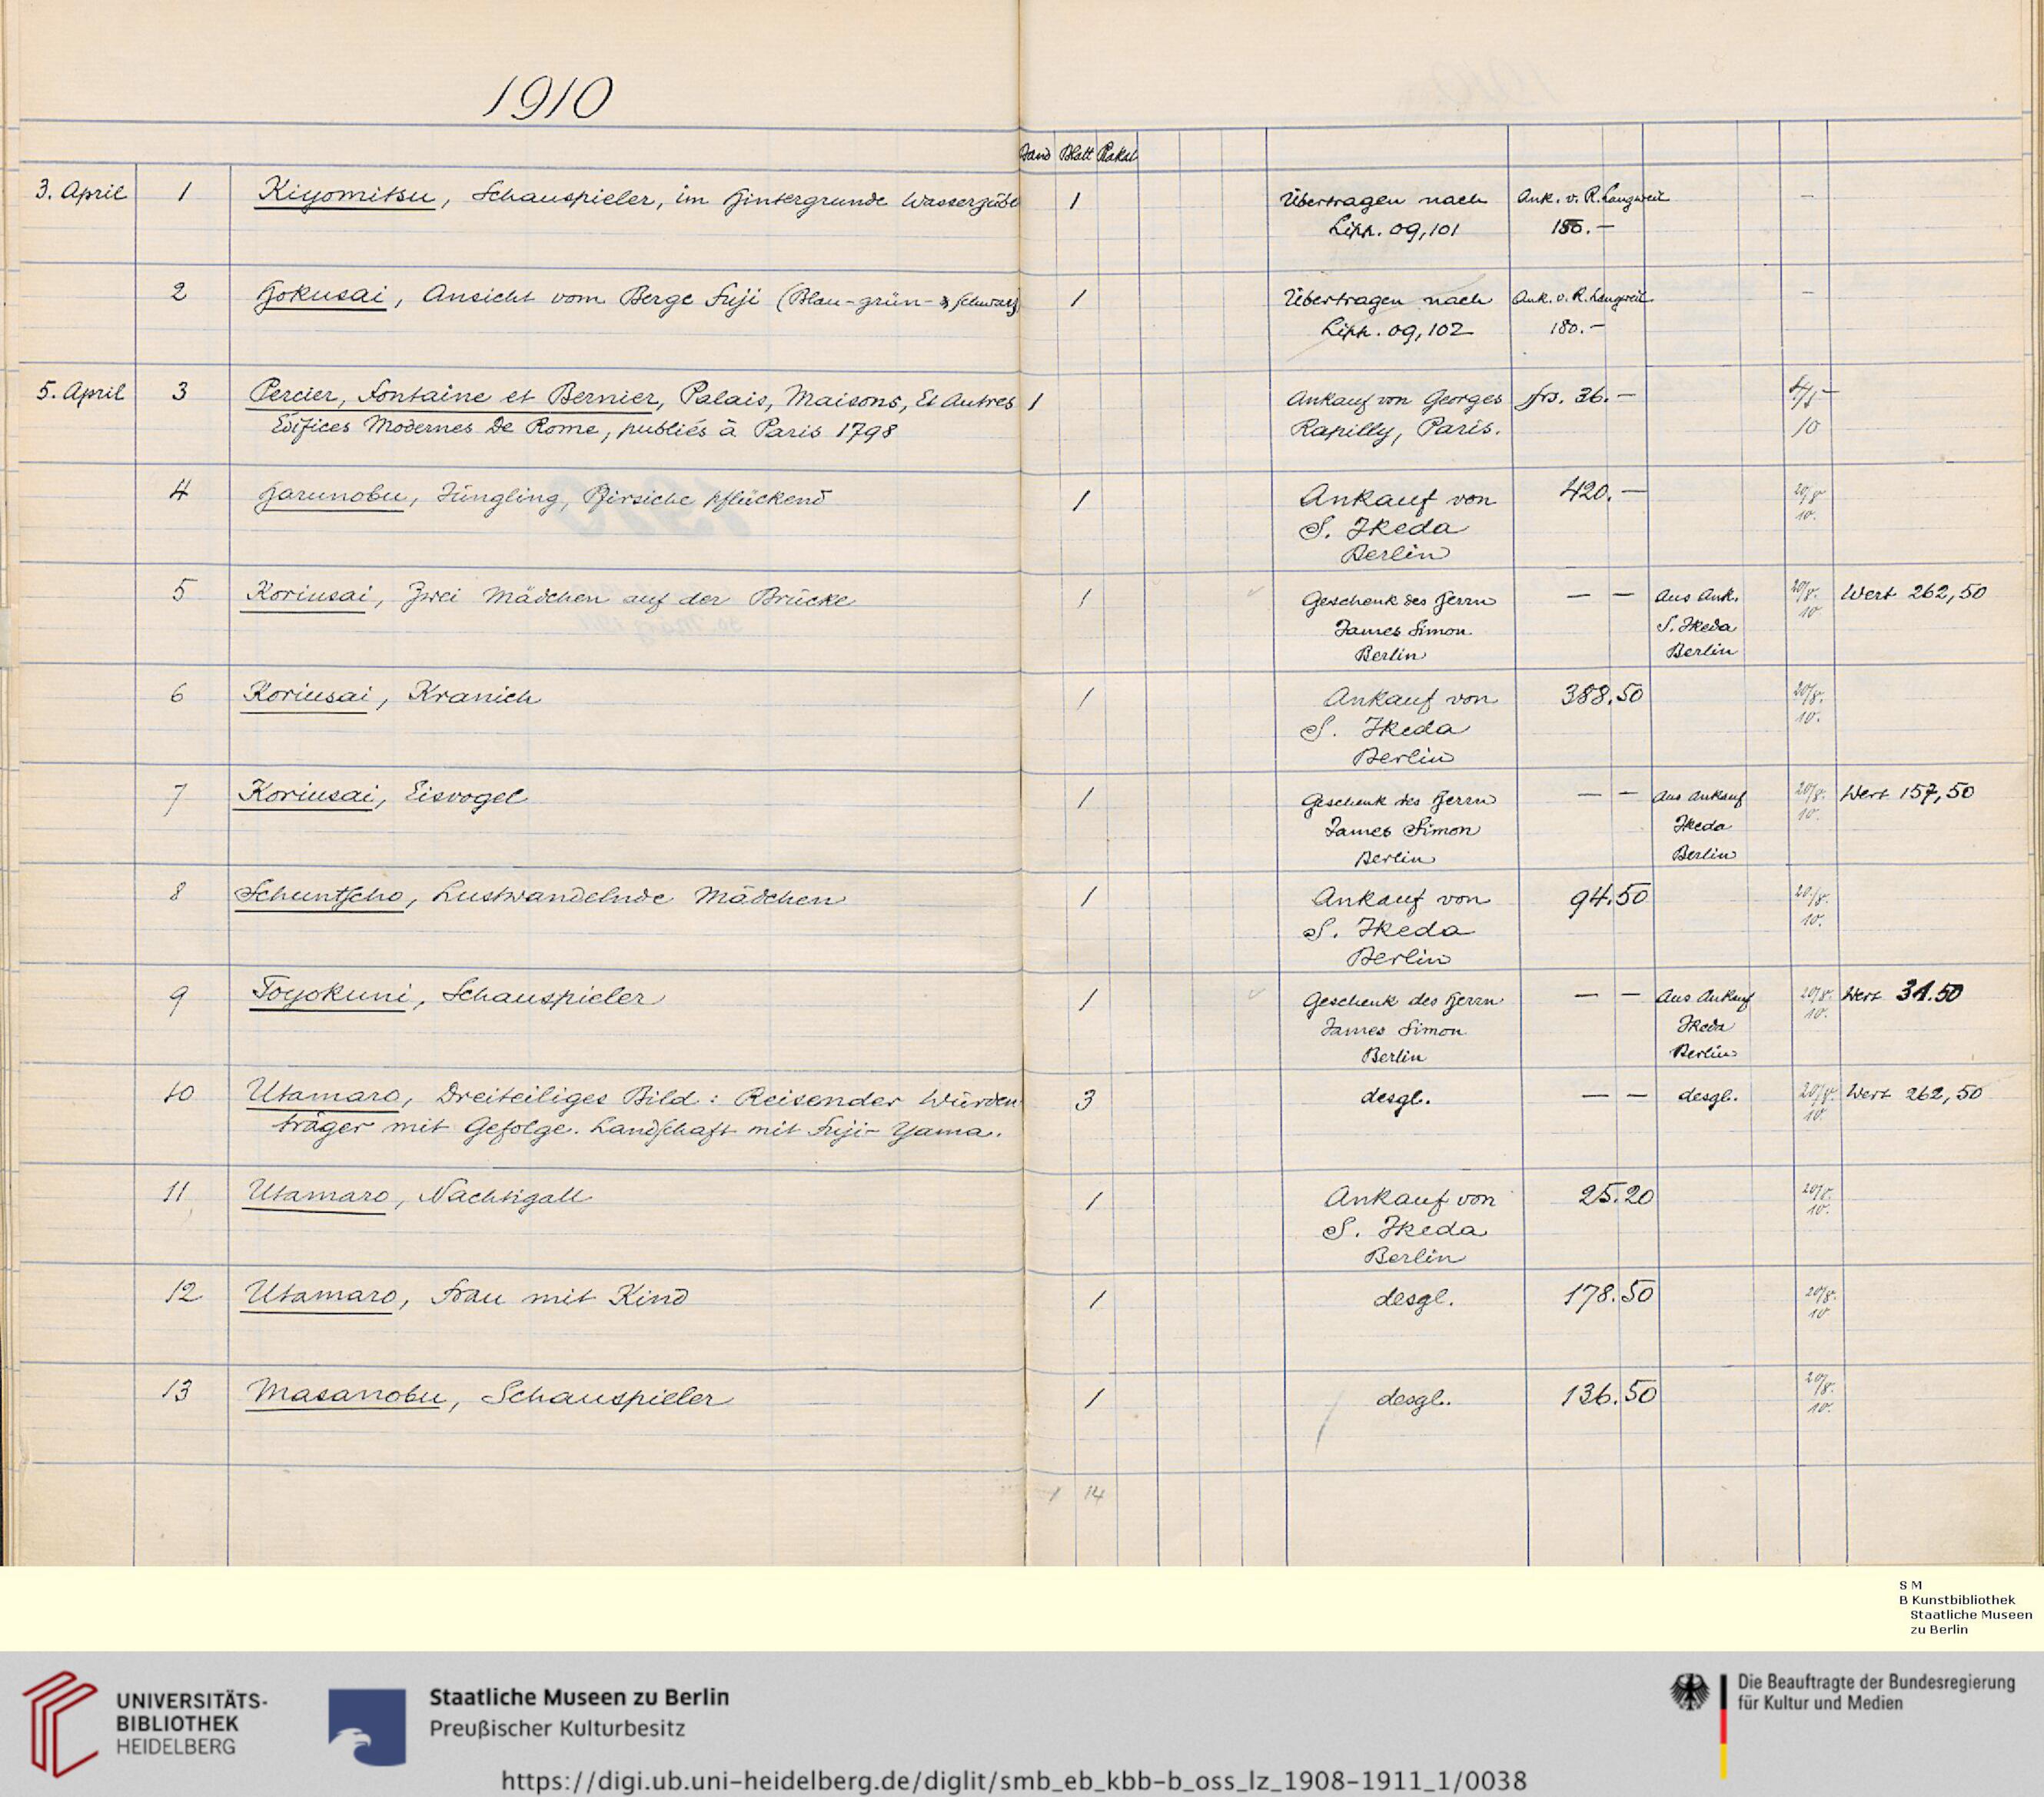 1910
Band Blatt Plakat
3. April 1 Kiyomitsu, Schauspieler, im Hintergrunde 1 Übertragen nach Ank. v. R. Langweil —
Lipp. 09,101 150.—
2 Hokusai, Ansicht vom Berge Fuji (Blau-grün-schwarz) 1 Übertragen nach Ank. v. R. Langweil —
Lipp. 09,102 180.—
5. April 3 Percier, Fontaine et Bernier, Palais, Maisons, Et Autres 1 Ankauf von Georges frs. 36.— 4/5
Edifices Modernes De Rome, publiés à Paris 1798 Rapilly, Paris. 10
4 Harunobu, Jüngling, Pfirsiche pflückend 1 Ankauf von 420.— 20/8.
S. Ikeda 10.
Berlin
5 Koriusai, Zwei Mädchen auf der Brücke 1 Geschenk des Herrn — — Aus Ank. 20/8. Wert 262,50
James Simon S. Ikeda 10.
Berlin Berlin
6 Koriusai, Kranich 1 Ankauf von 388.50 20/8.
S. Ikeda 10.
Berlin
7 Koriusai, Eisvogel 1 Geschenk des Herrn — — Aus Ankauf 20/8. Wert 157,50
James Simon Ikeda 10.
Berlin Berlin
8 Schuntscho, Lustwandelnde Mädchen 1 Ankauf von 94.50 20/8.
S. Ikeda 10.
Berlin
9 Toyokuni, Schauspieler 1 Geschenk des Herrn — — Aus Ankauf 20/8. Wert 31.50
James Simon Ikeda 10.
Berlin Berlin
10 Utamaro, Dreiteiliges Bild: Reisender Würden 3 desgl. — — desgl. 20/8. Wert 262,50
träger mit Gefolge. Landschaft mit Fuji-Yama. 10.
11 Utamaro, Nachtigall 1 Ankauf von 25.20 20/8.
S. Ikeda 10.
Berlin
12 Utamaro, Frau mit Kind 1 desgl. 178.50 20/8.
10
13 Masanobu, Schauspieler 1 desgl. 136.50 20/8.
10.
1 14
S M
B Kunstbibliothek
Staatliche Museen
zu Berlin
UNIVERSITÄTS-
BIBLIOTHEK
HEIDELBERG
Staatliche Museen zu Berlin
Preußischer Kulturbesitz
Die Beauftragte der Bundesregierung
für Kultur und Medien
https://digi.ub.uni-heidelberg.de/diglit/smb_eb_kbb-b_oss_lz_1908-1911_1/0038